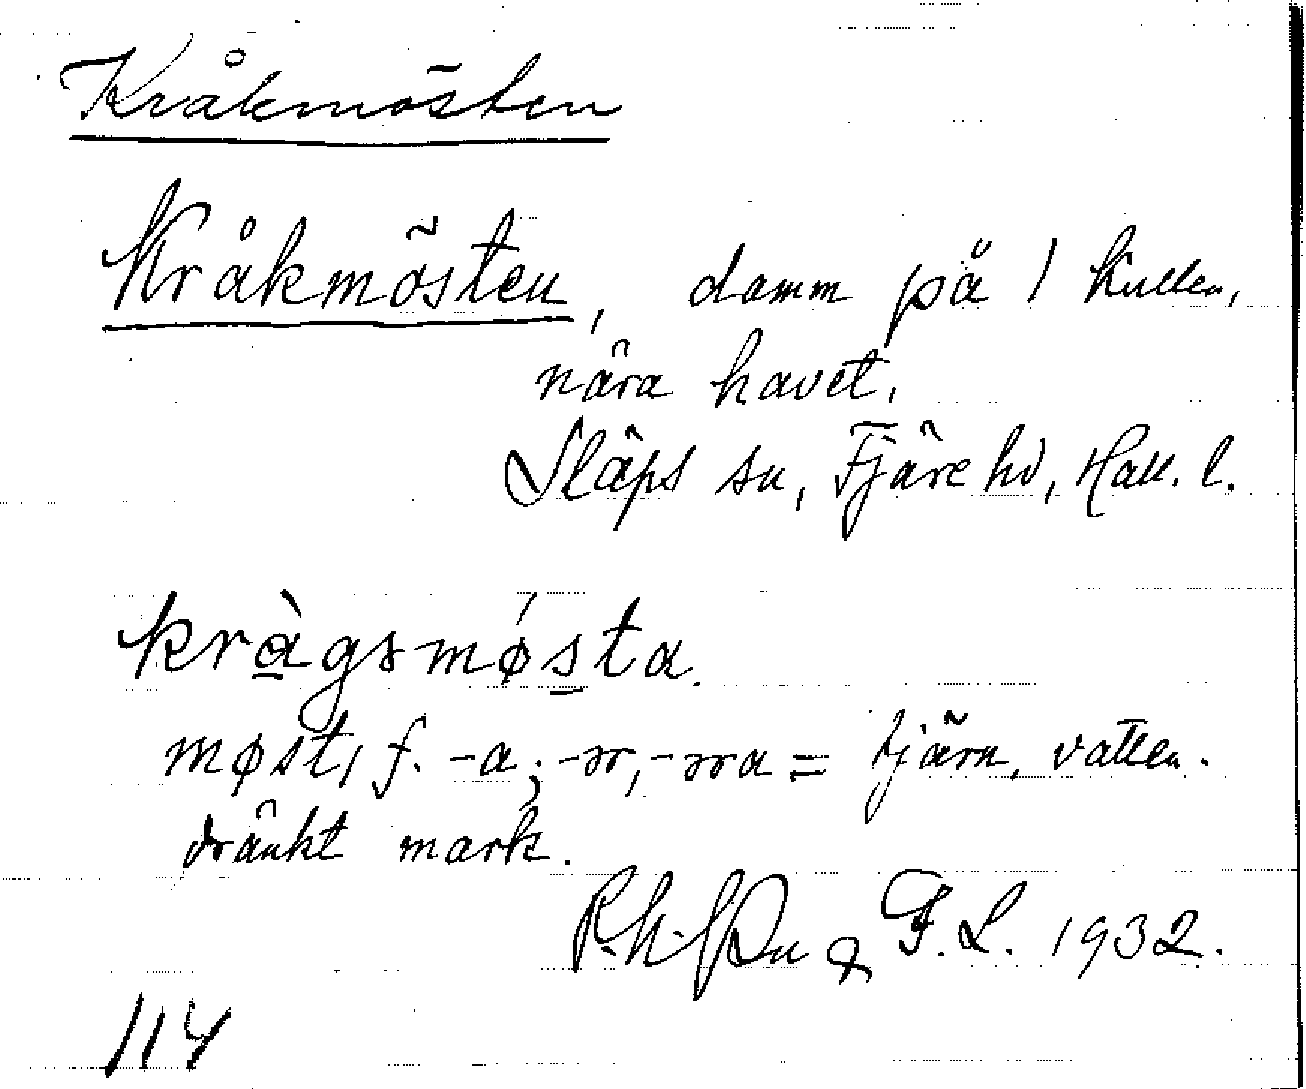 Kråkmösten
Kråkmösten, damm på 1 Kullen,
nära havet.
Släps sn, Fjäre hd, Hall. l.
kràgsmǿsta.
møst, f. -a; -ər, -əra = tjärn, vatten-
dränkt mark.
& F. L. 1932.
114